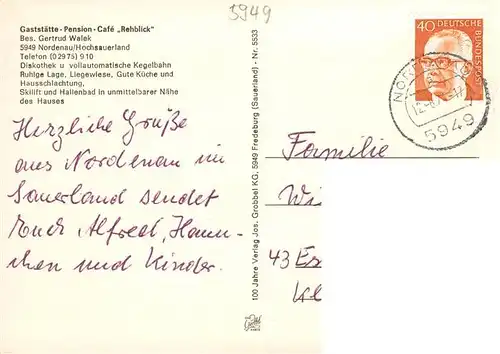 5949
Gaststätte-Pension-Café „Rehblick"
Bes. Gertrud Walek
5949 Nordenau/Hochsauerland
Telefon (02975) 910
Diskothek u vollautomatische Kegelbahn
Ruhige Lage, Liegewiese, Gute Küche und
Hausschlachtung,
Skilift und Hallenbad in unmittelbarer Nähe
des Hauses
Herzliche Grüße
aus Nordenau im
Sauerland sendet
Euch Alfred, Hann-
chen und Kinder.
100 Jahre Verlag Jos. Grobbel KG, 5949 Fredeburg (Sauerland) - Nr. 5533
40 DEUTSCHE
BUNDESPOST
5949
Familie
Wi
43 Es